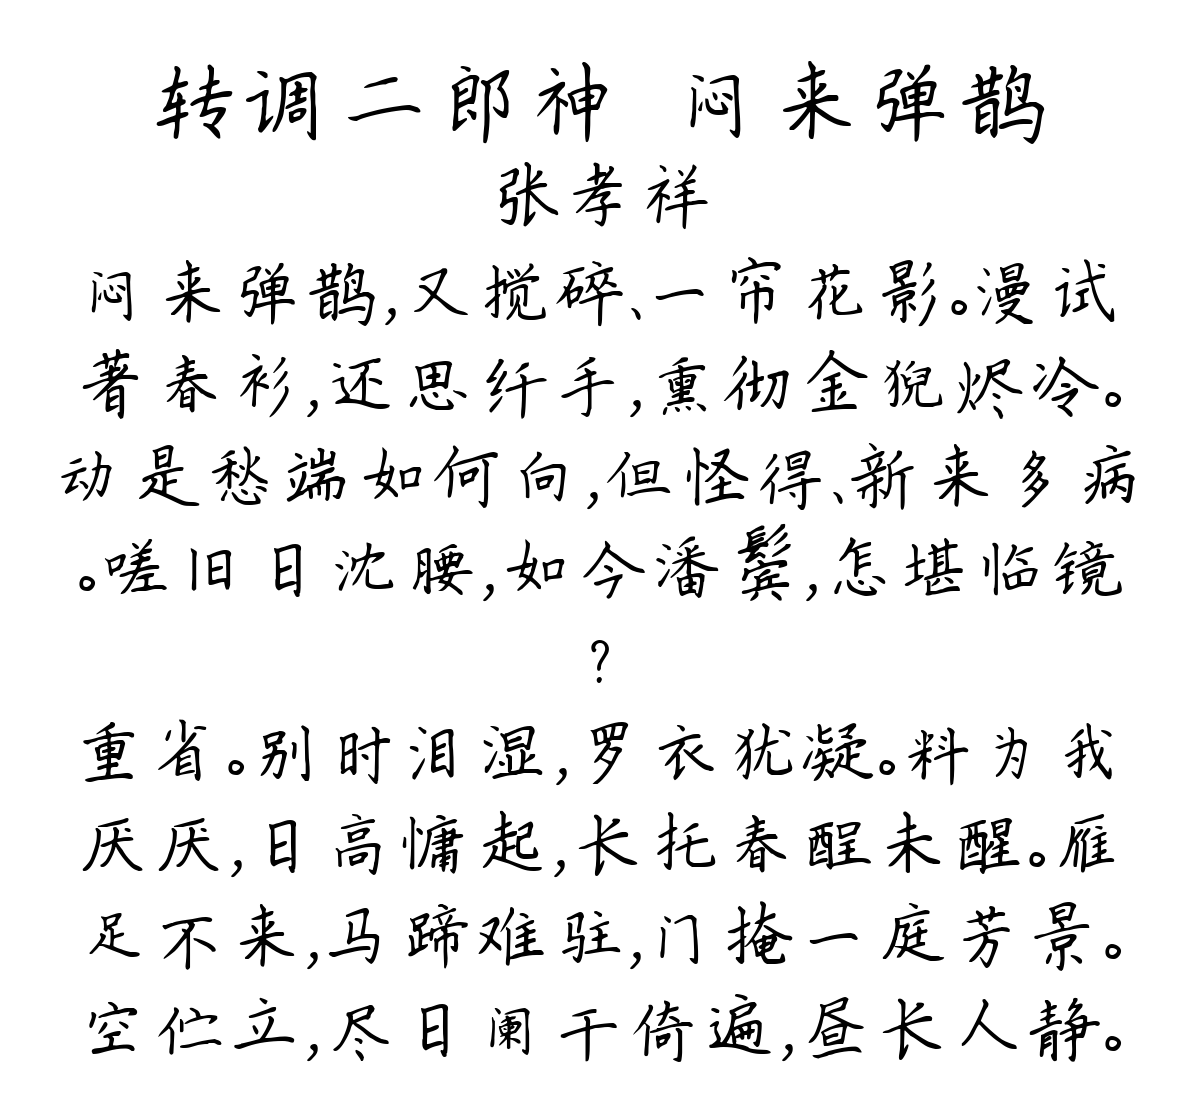 转调二郎神 闷来弹鹊
张孝祥
闷来弹鹊,又搅碎、一帘花影。漫试
著春衫,还思纤手,熏彻金猊烬冷。
动是愁端如何向,但怪得、新来多病
。嗟旧日沈腰,如今潘鬓,怎堪临镜
?
重省。别时泪湿,罗衣犹凝。料为我
厌厌,日高慵起,长托春酲未醒。雁
足不来,马蹄难驻,门掩一庭芳景。
空伫立,尽日阑干倚遍,昼长人静。